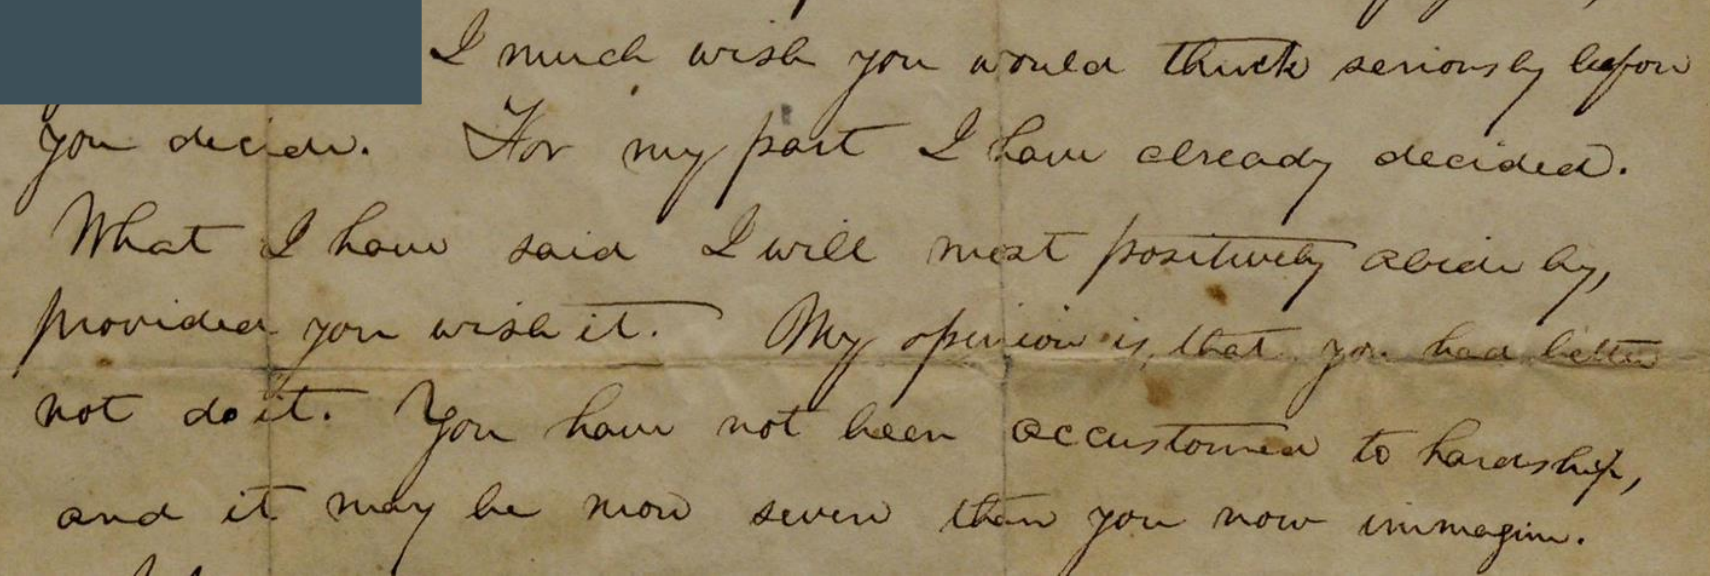 I much wish you would think seriously before
you decide. For my part I have already decided.
What I have said I will most positively abide by,
provided you wish it. My opinion is that you had better
not do it. You have not been accustomed to hardship,
and it may be more severe than you now immagine.